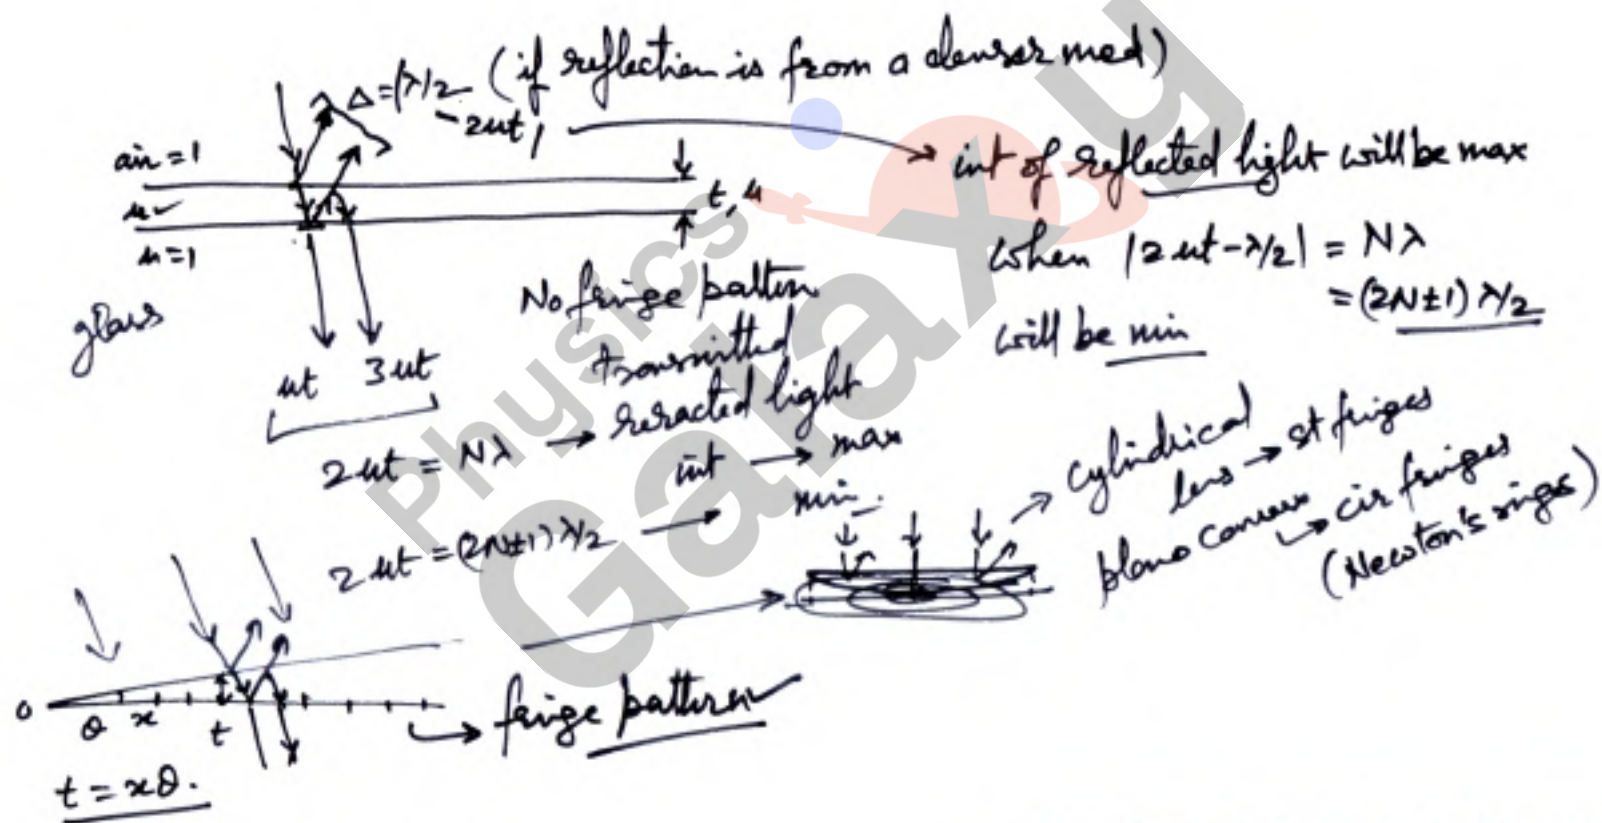 Δ = |λ/2 - 2μt| (if reflection is from a denser med)
air = 1
μ
μ = 1
t, μ
int of reflected light will be max
when |2μt - λ/2| = Nλ
= (2N±1) λ/2
will be min
glass
No fringe pattern
μt 3μt
transmitted
reracted light
2μt = Nλ → int → max
2μt = (2N±1) λ/2 → min
cylindrical
lens → st fringes
plano convex
↳ cir fringes
(Newton's rings)
0 θ x t
t = xθ.
↳ fringe pattern
Physics
Galaxy